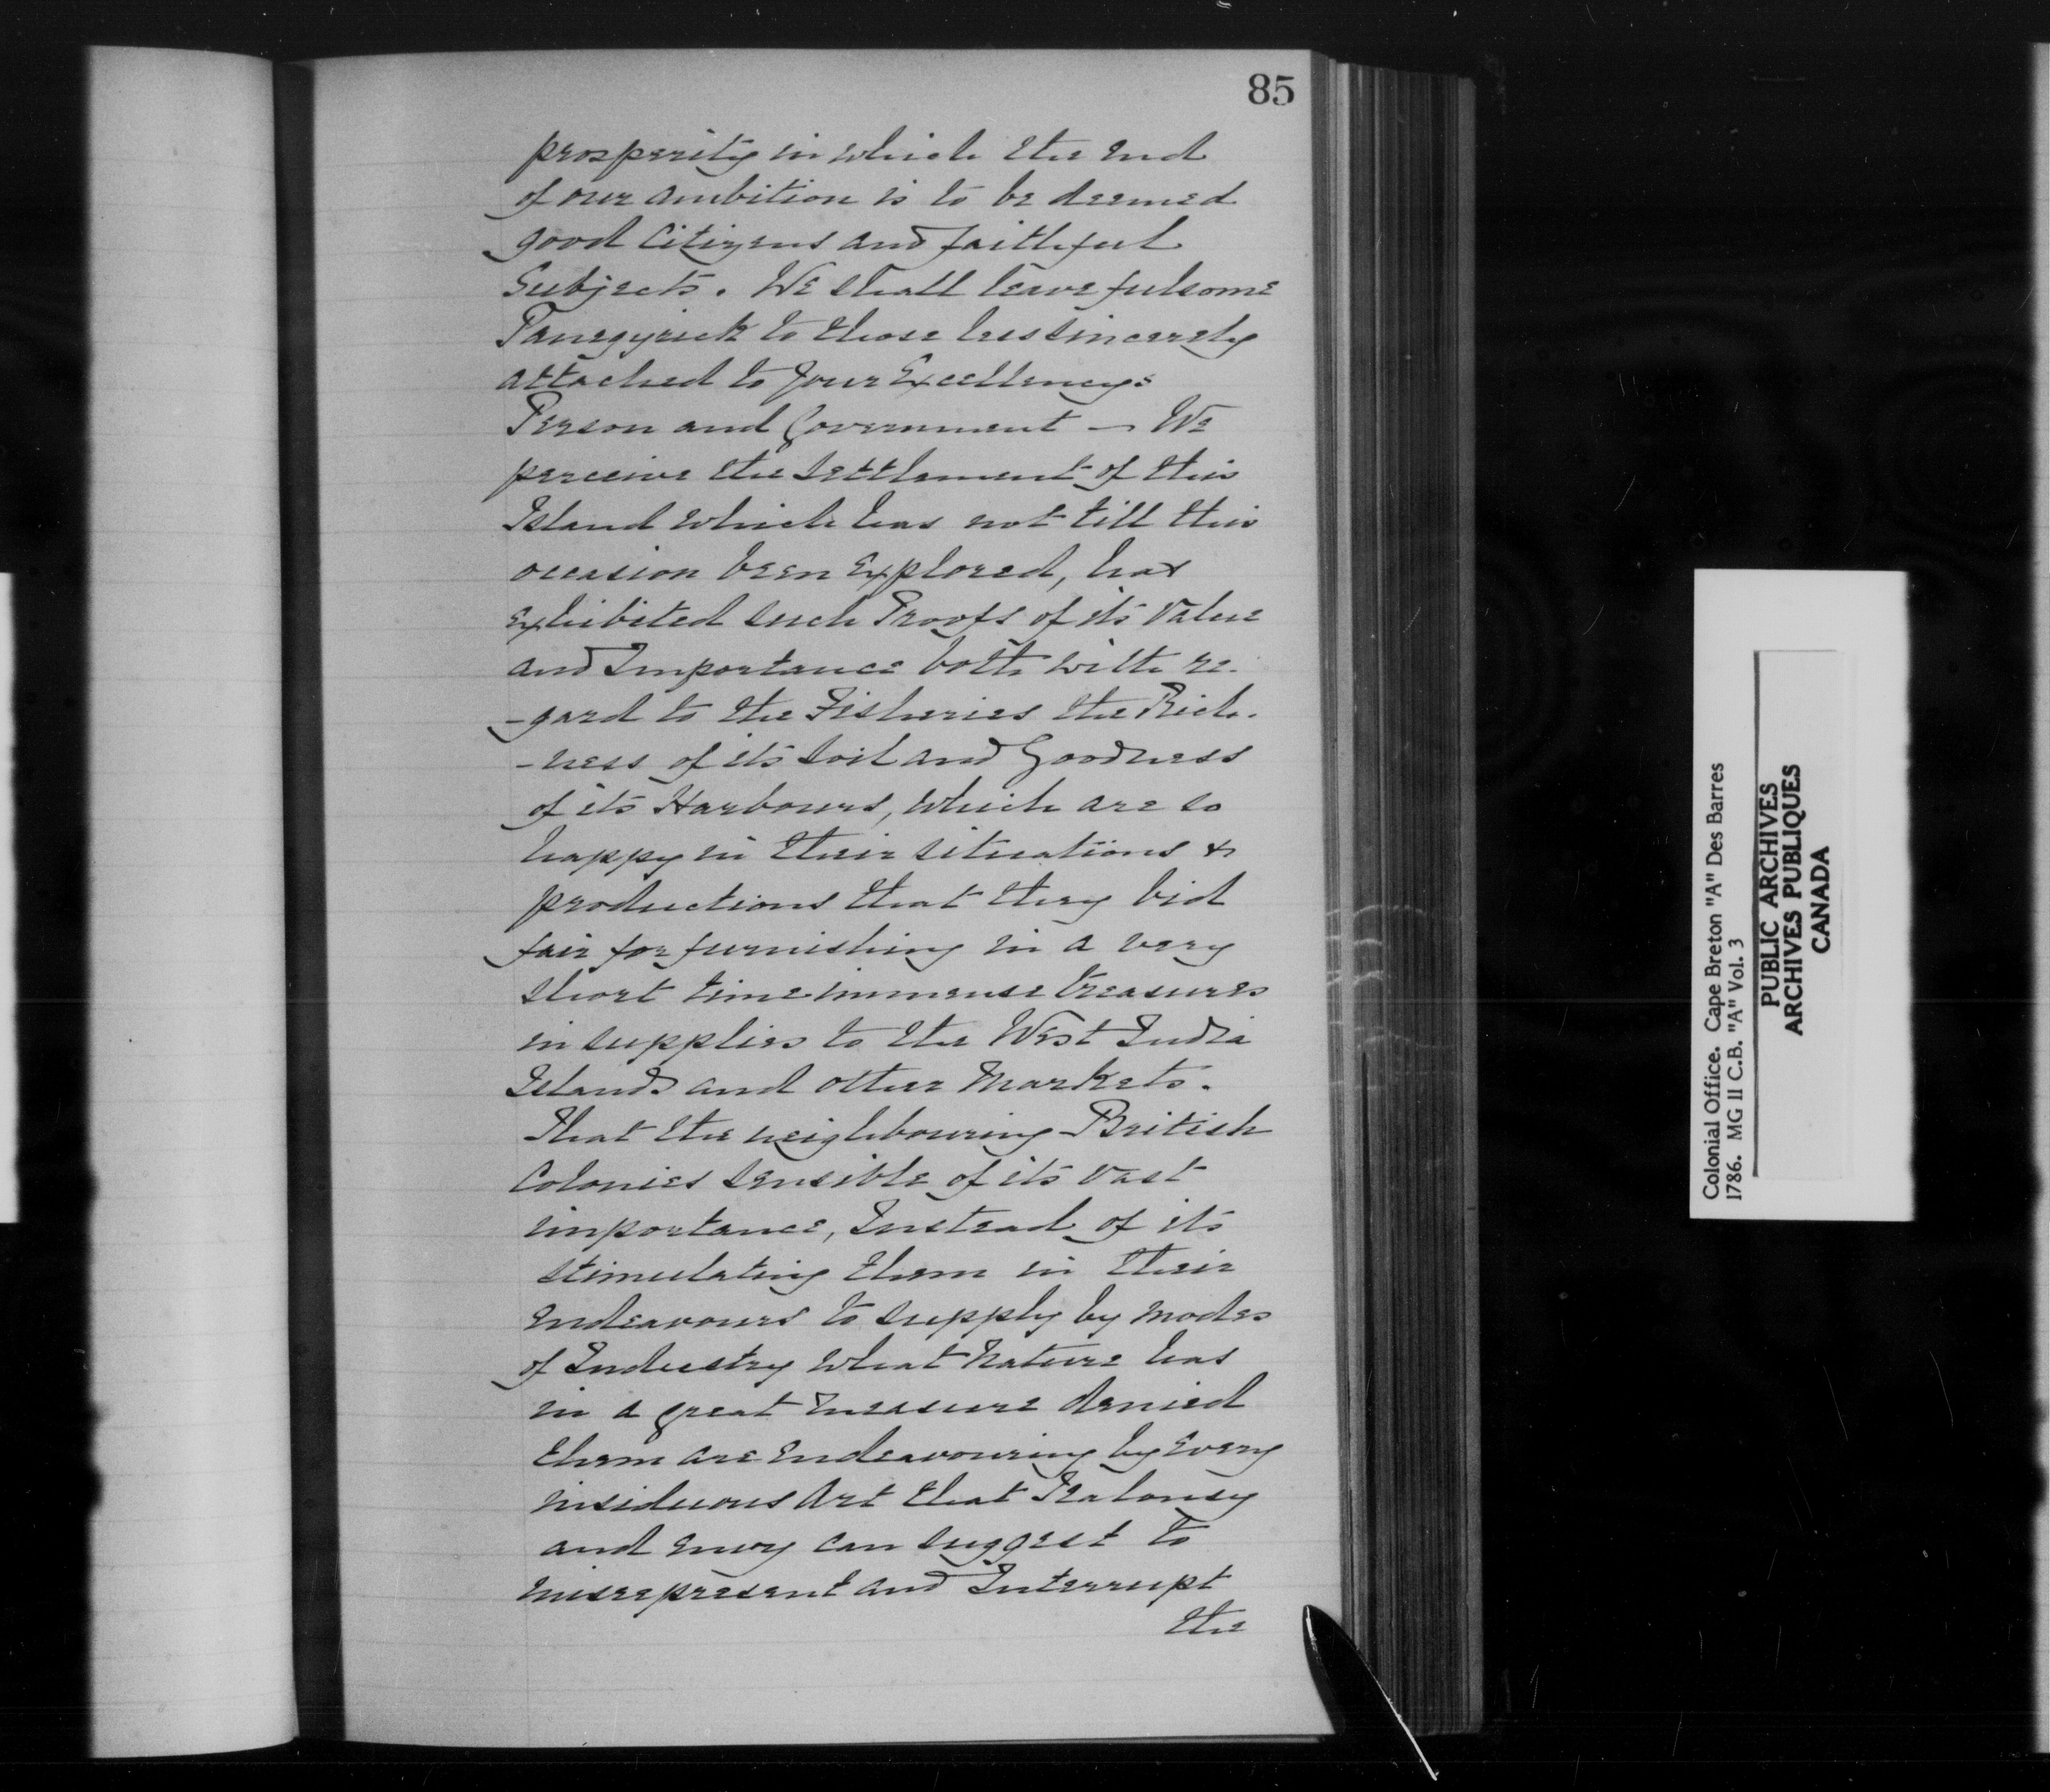 85
prosperity in which the End
of our ambition is to be deemed
good Citizens and faithful
Subjects. We shall leave fulsome
Panegyrick to those less sincerely
attached to your Excellency's
Person and Government — We
perceive the settlement of this
Island which has not till this
occasion been Explored, has
Exhibited such Proofs of its Value
and Importance both with re-
-gard to the Fisheries the Rich-
-ness of its Soil and Goodness
of its Harbours, which are so
happy in their situations &
productions that they bid
fair for furnishing in a very
short time immense treasures
in supplies to the West India
Islands and other Markets.
That the neighbouring British
Colonies sensible of its vast
importance, Instead of its
stimulating them in their
Endeavours to supply by modes
of Industry what Nature has
in a great measure denied
them are Endeavouring by Every
insiduous Art that Jealousy
and Envy can suggest to
misrepresent and Interrupt
the
Colonial Office. Cape Breton "A" Des Barres
1786. MG II C.B. "A" Vol. 3
PUBLIC ARCHIVES
ARCHIVES PUBLIQUES
CANADA